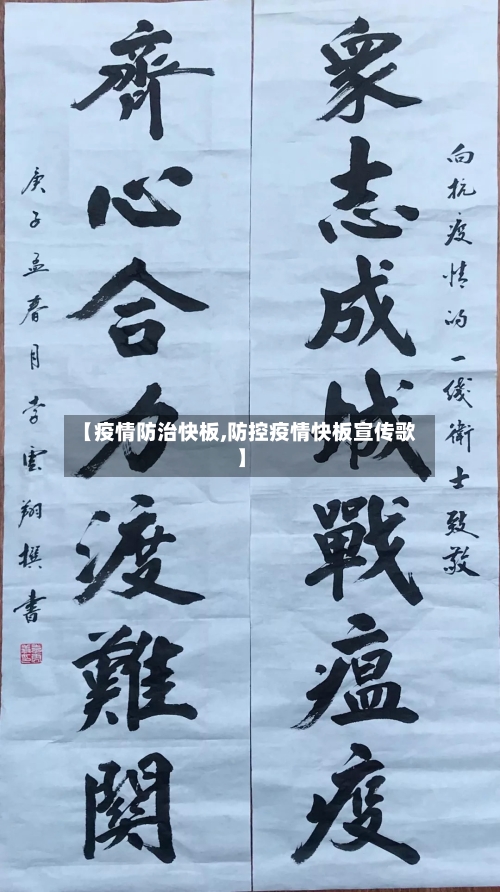 向抗疫情的一线衛士致敬
衆志成城戰瘟疫
齊心合力渡難關
庚子孟春月李雲翔撰書
【疫情防治快板,防控疫情快板宣传歌
】